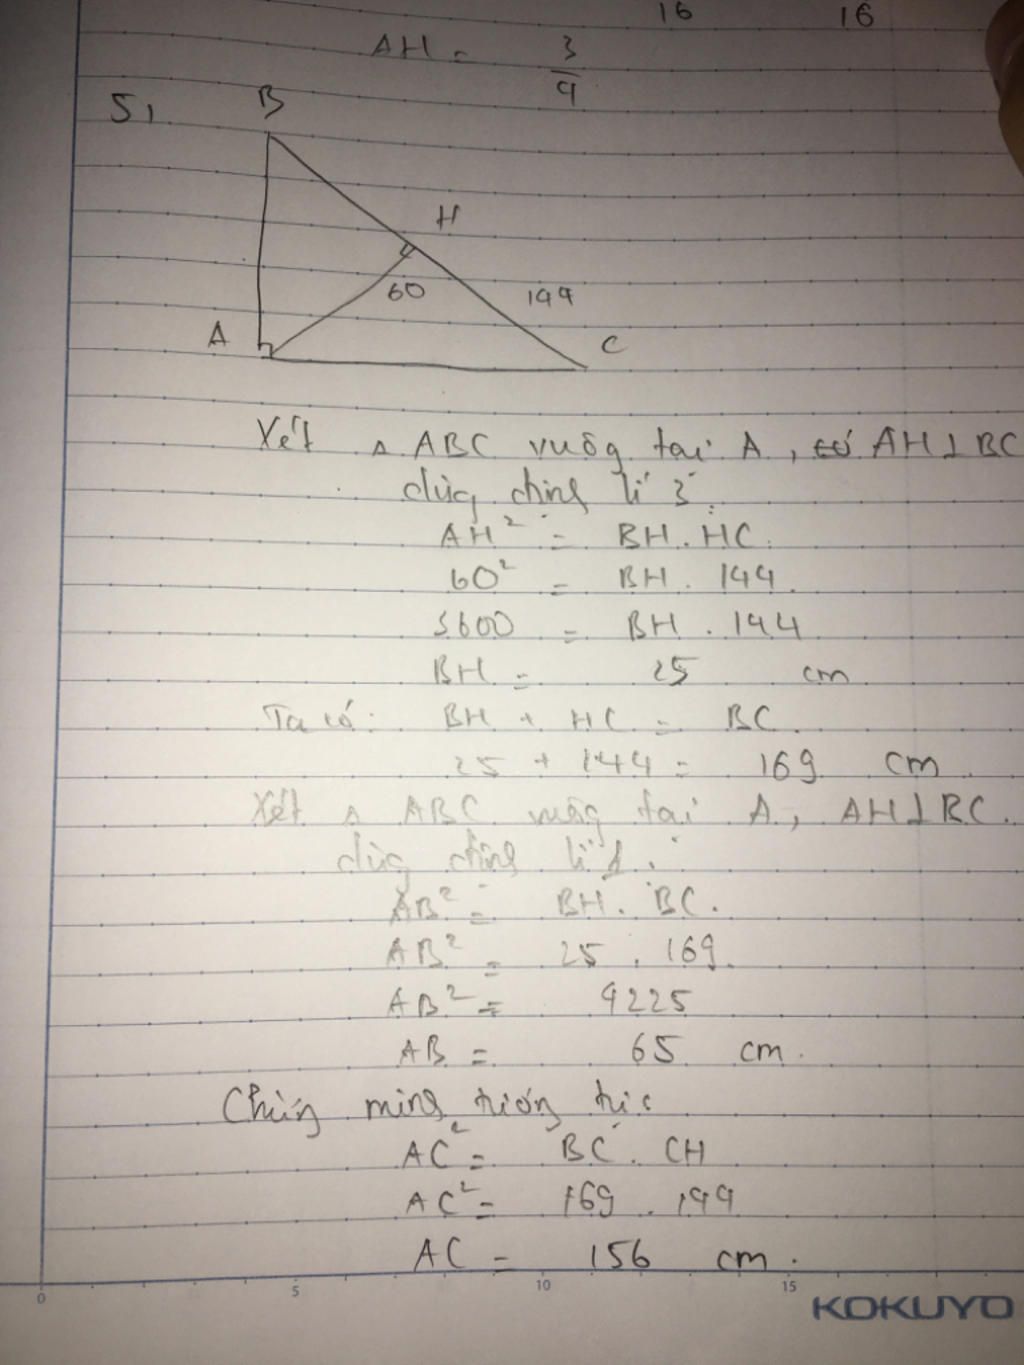 16 16
AH = 3/4
51
B
H
60
144
A
C
Xét △ ABC vuôg tại A, có AH⊥BC
dùg địnhg lí 3:
AH² = BH.HC.
60² = BH. 144.
3600 = BH . 144
BH = 25 cm
Ta có: BH + HC = BC.
25 + 144 = 169 cm.
Xét △ ABC vuôg tại A, AH⊥BC.
dùg lí 1.
AB² = BH. BC.
AB² = 25 . 169.
AB² = 4225
AB = 65 cm.
Chứg ming tươg tự:
AC² = BC. CH
AC² = 169 . 144
AC = 156 cm.
0 5 10 15
KOKUYO